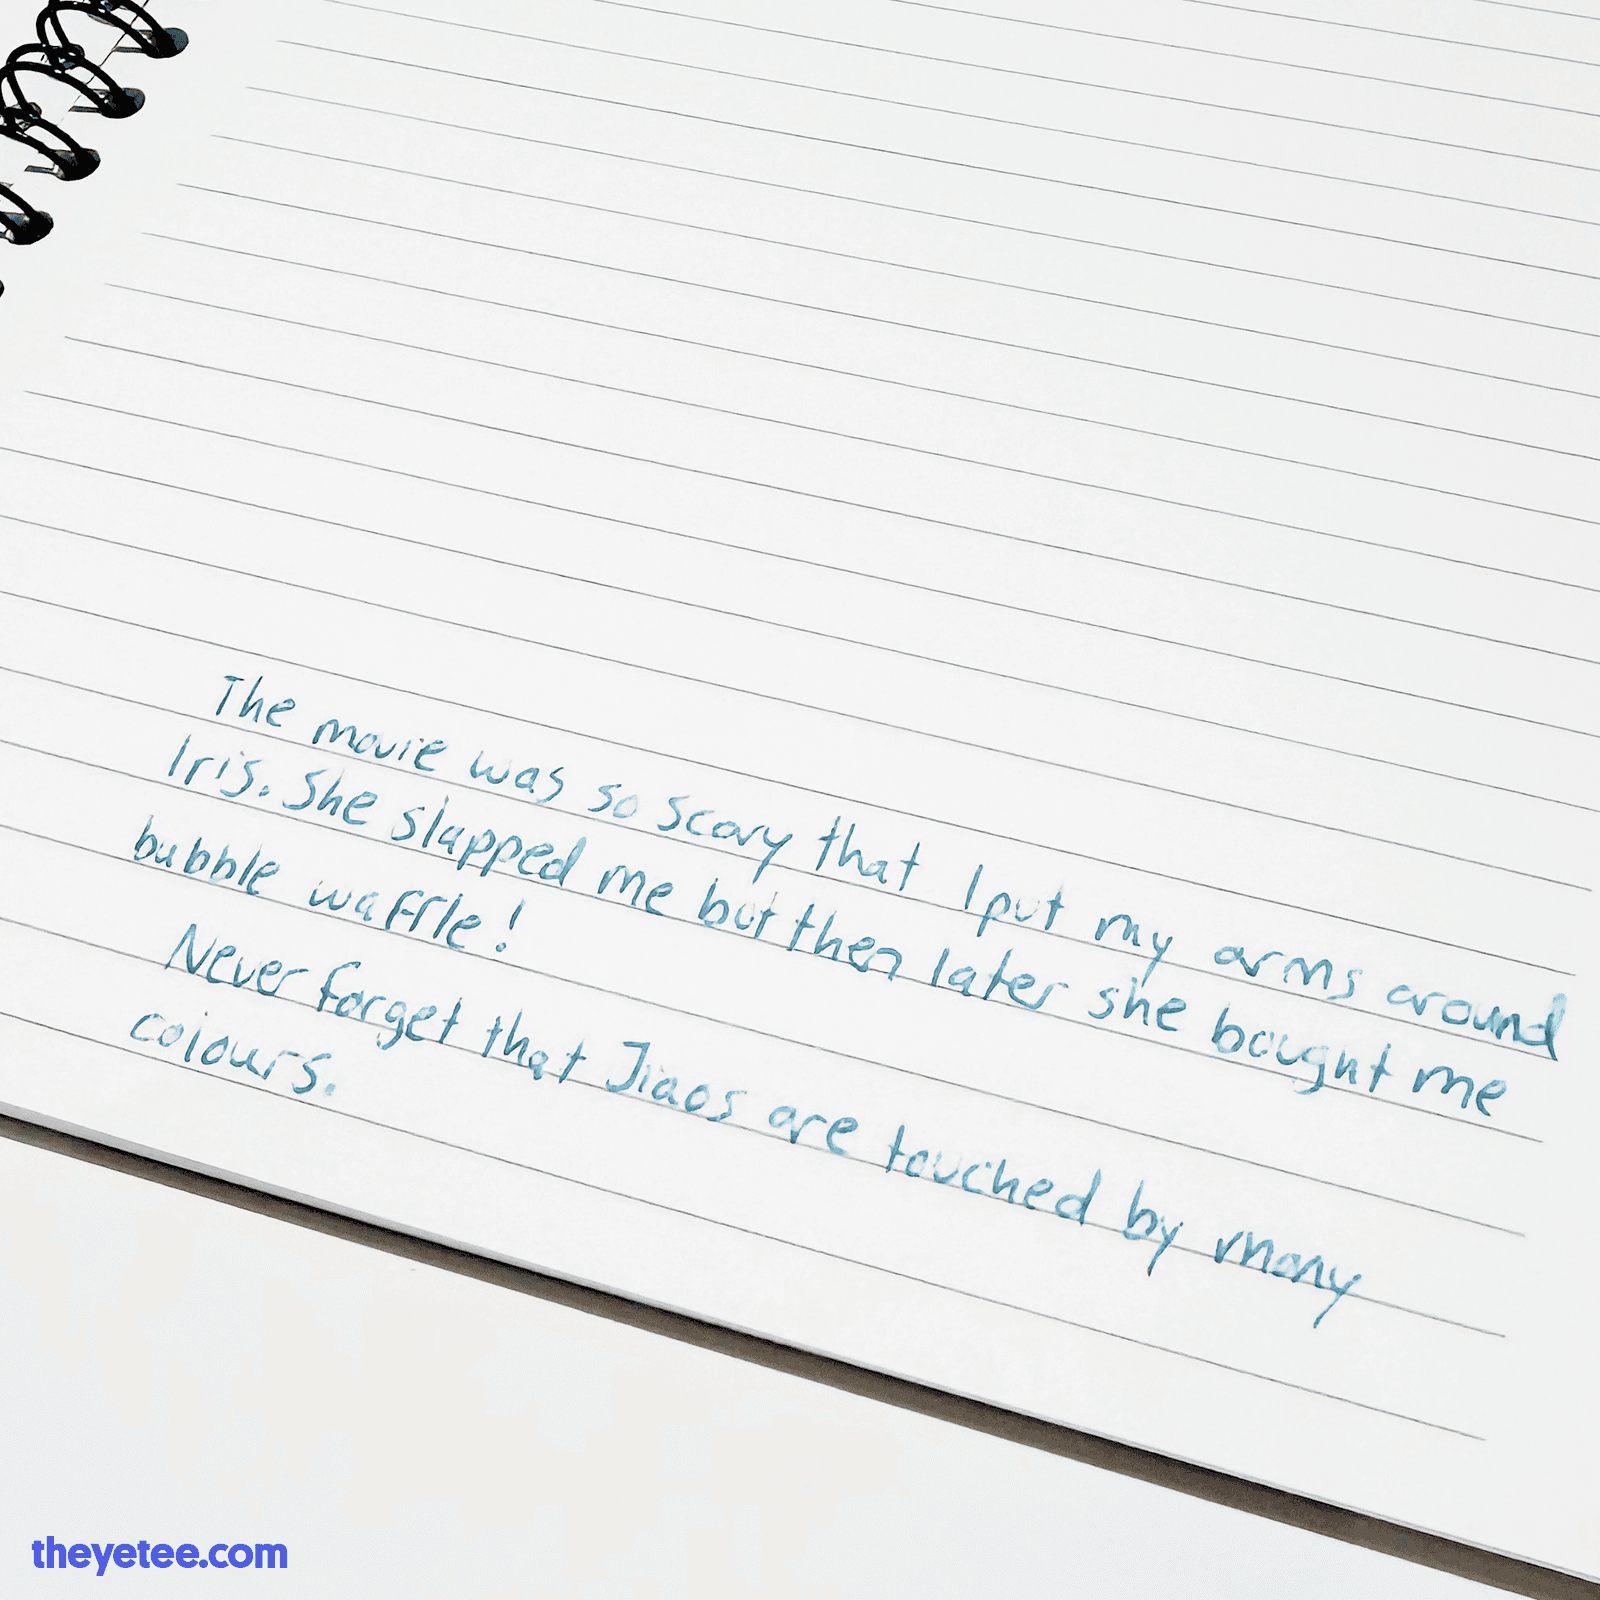 The movie was so scary that I put my arms around
Iris. She slapped me but then later she bought me
bubble waffle!
Never forget that Jiaos are touched by many
colours.
theyetee.com